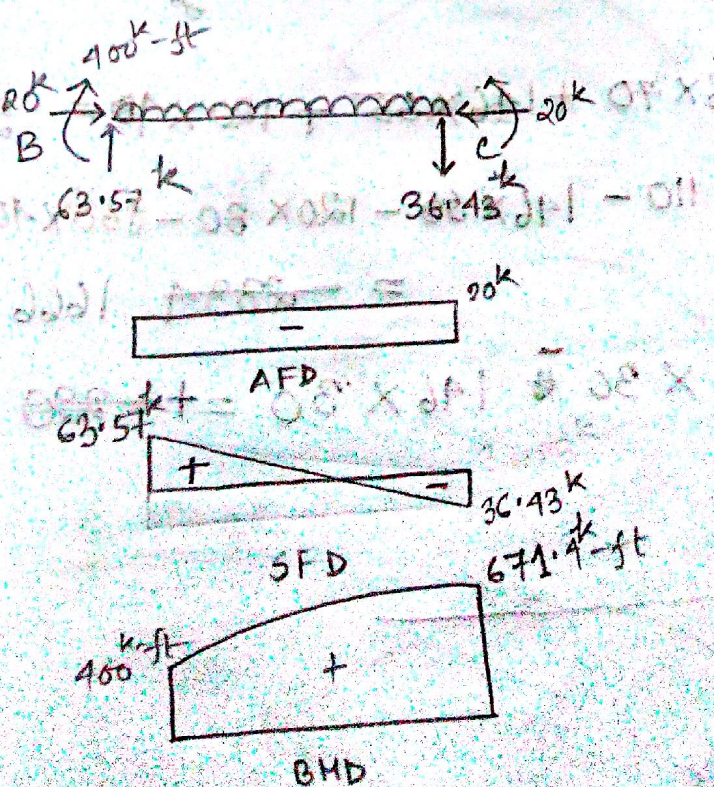 400 k-ft
20k
20k
B
C
63.57 k
36.43 k
20k
-
AFD
63.57 k
+
-
36.43 k
SFD
671.4 k-ft
400 k-ft
+
BMD